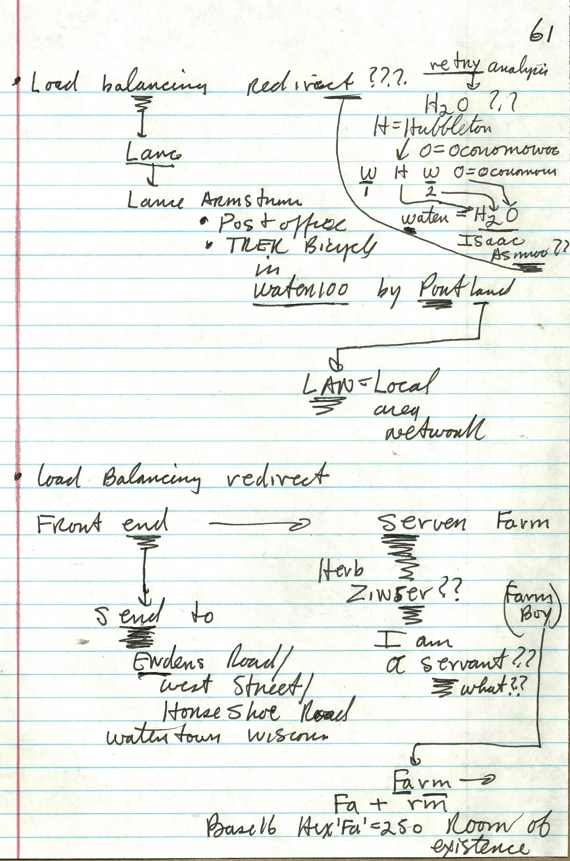 61
• Load balancing redirect ???
retny analysis
H2O ??
H = Hubbleton
O = Oconomowoc
W H W O = Oconomow
1 2
waten = H2O
Isaac
Asmwo ??
Lanc
Lance Armstrum
• Post office
• TREK Bicycle
in
waten100 by Pontland
LAN = Local
area
network
• Load Balancing redirect
Front end → Serven Farm
Herb
Zinser ??
(Farm
Boy)
Send to
I am
a servant ??
what??
Endens Road/
west Street/
Honse Shoe Road
watentown wisconn
Farm →
Fa + rm
Base16 Hex 'Fa' = 250 Room of
existence